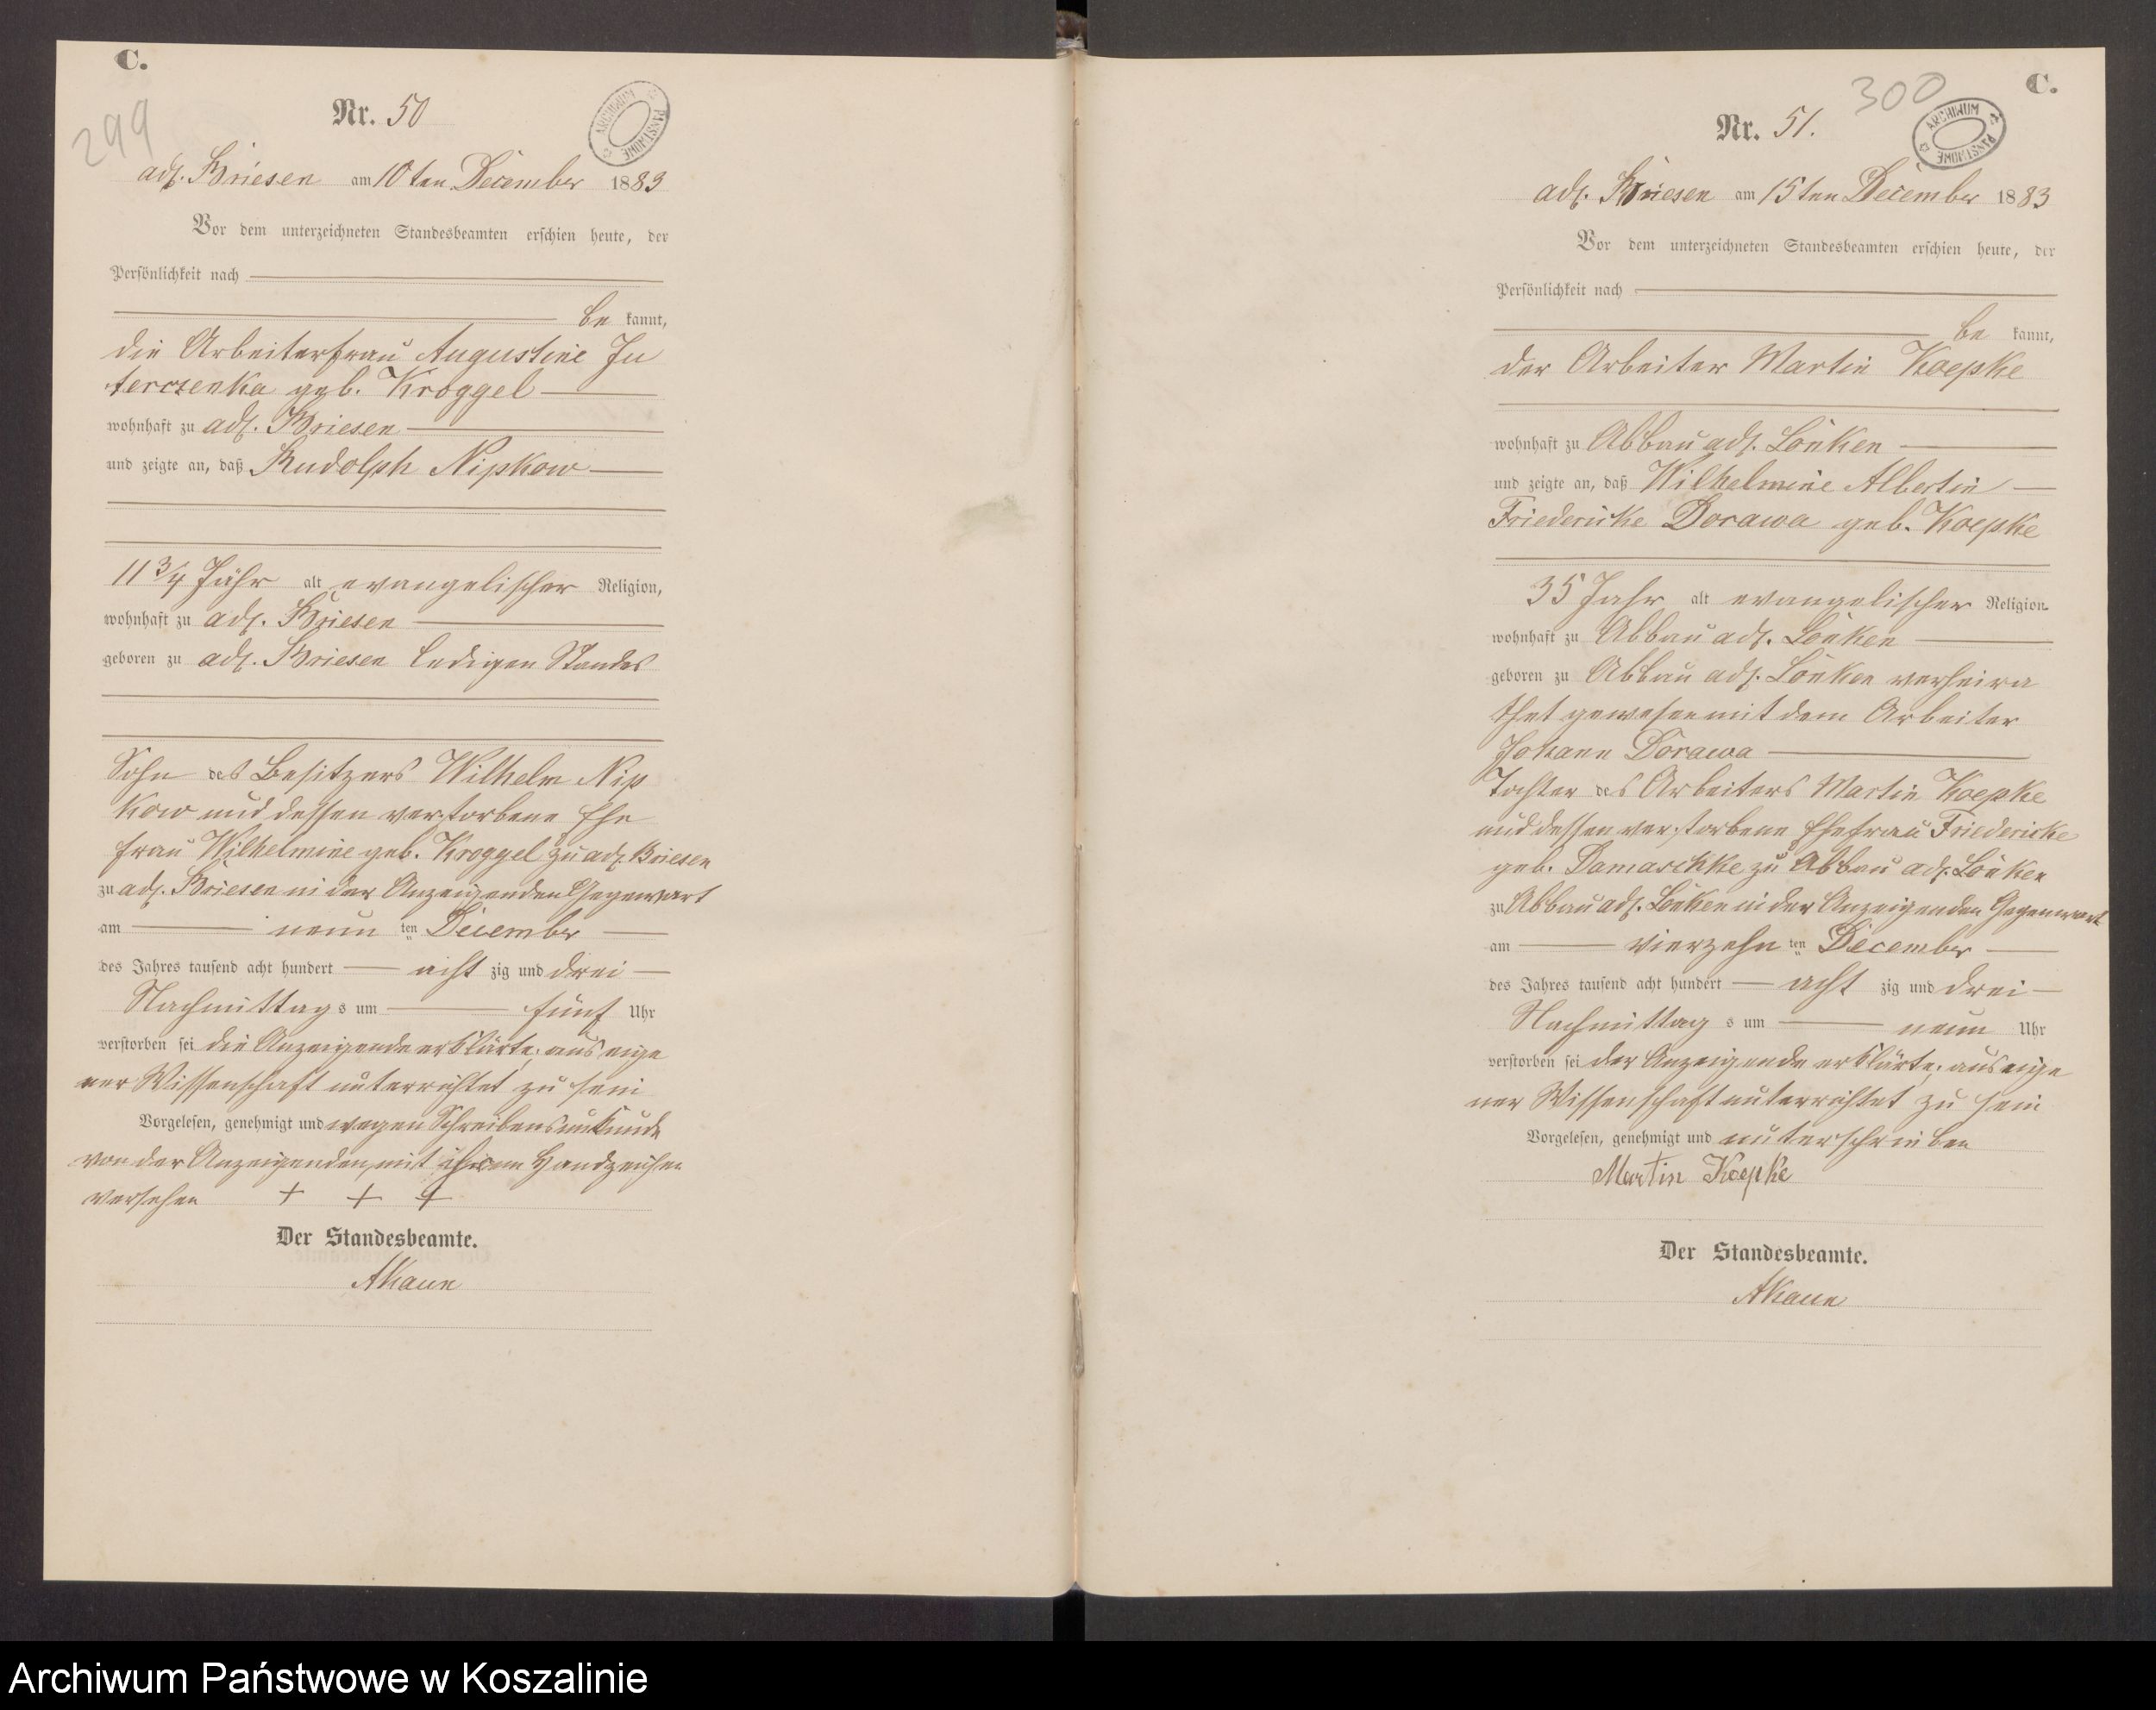 C.
299
Nr. 50
ARCHIWUM PAŃSTWOWE
adl. Briesen am 10ten December 1883
Vor dem unterzeichneten Standesbeamten erschien heute, der
Persönlichkeit nach
be kannt,
die Arbeiterfrau Augustine Ju
terczenka geb. Kroggel
wohnhaft zu adl. Briesen
und zeigte an, daß Rudolph Nipkow
11 3/4 Jahr alt evangelischer Religion,
wohnhaft zu adl. Briesen
geboren zu adl. Briesen ledigen Standes
Sohn des Besitzers Wilhelm Nip
kow und dessen verstorbene Ehe
frau Wilhelmine geb. Kroggel zu adl. Briesen
zu adl. Briesen in der Anzeigenden Gegenwart
am neun ten December
des Jahres tausend acht hundert acht zig und drei
Nachmittag s um fünf Uhr
verstorben sei die Anzeigende erklärte, aus eige
ner Wissenschaft unterrichtet zu sein
Vorgelesen, genehmigt und wegen Schreibensunkunde
von der Anzeigenden, mit ihrem Handzeichen
versehen + + +
Der Standesbeamte.
C.
300
Nr. 51.
ARCHIWUM PAŃSTWOWE
adl. Briesen am 15ten December 1883
Vor dem unterzeichneten Standesbeamten erschien heute, der
Persönlichkeit nach
be kannt,
der Arbeiter Martin Koepke
wohnhaft zu Abbau adl. Lonken
und zeigte an, daß Wilhelmine Albertine
Friedericke Dorawa geb. Koepke
35 Jahr alt evangelischer Religion.
wohnhaft zu Abbau adl. Lonken
geboren zu Abbau adl. Lonken verheira
thet gewesen mit dem Arbeiter
Johann Dorawa
Tochter des Arbeiters Martin Koepke
und dessen verstorbene Ehefrau Friedericke
geb. Damaschke zu Abbau adl. Lonken
zu Abbau adl. Lonken in der Anzeigenden Gegenwart
am vierzehn ten December
des Jahres tausend acht hundert acht zig und drei
Nachmittag s um neun Uhr
verstorben sei der Anzeigende erklärte, aus eige
ner Wissenschaft unterrichtet zu sein
Vorgelesen, genehmigt und unterschrieben
Martin Koepke
Der Standesbeamte.
Archiwum Państwowe w Koszalinie